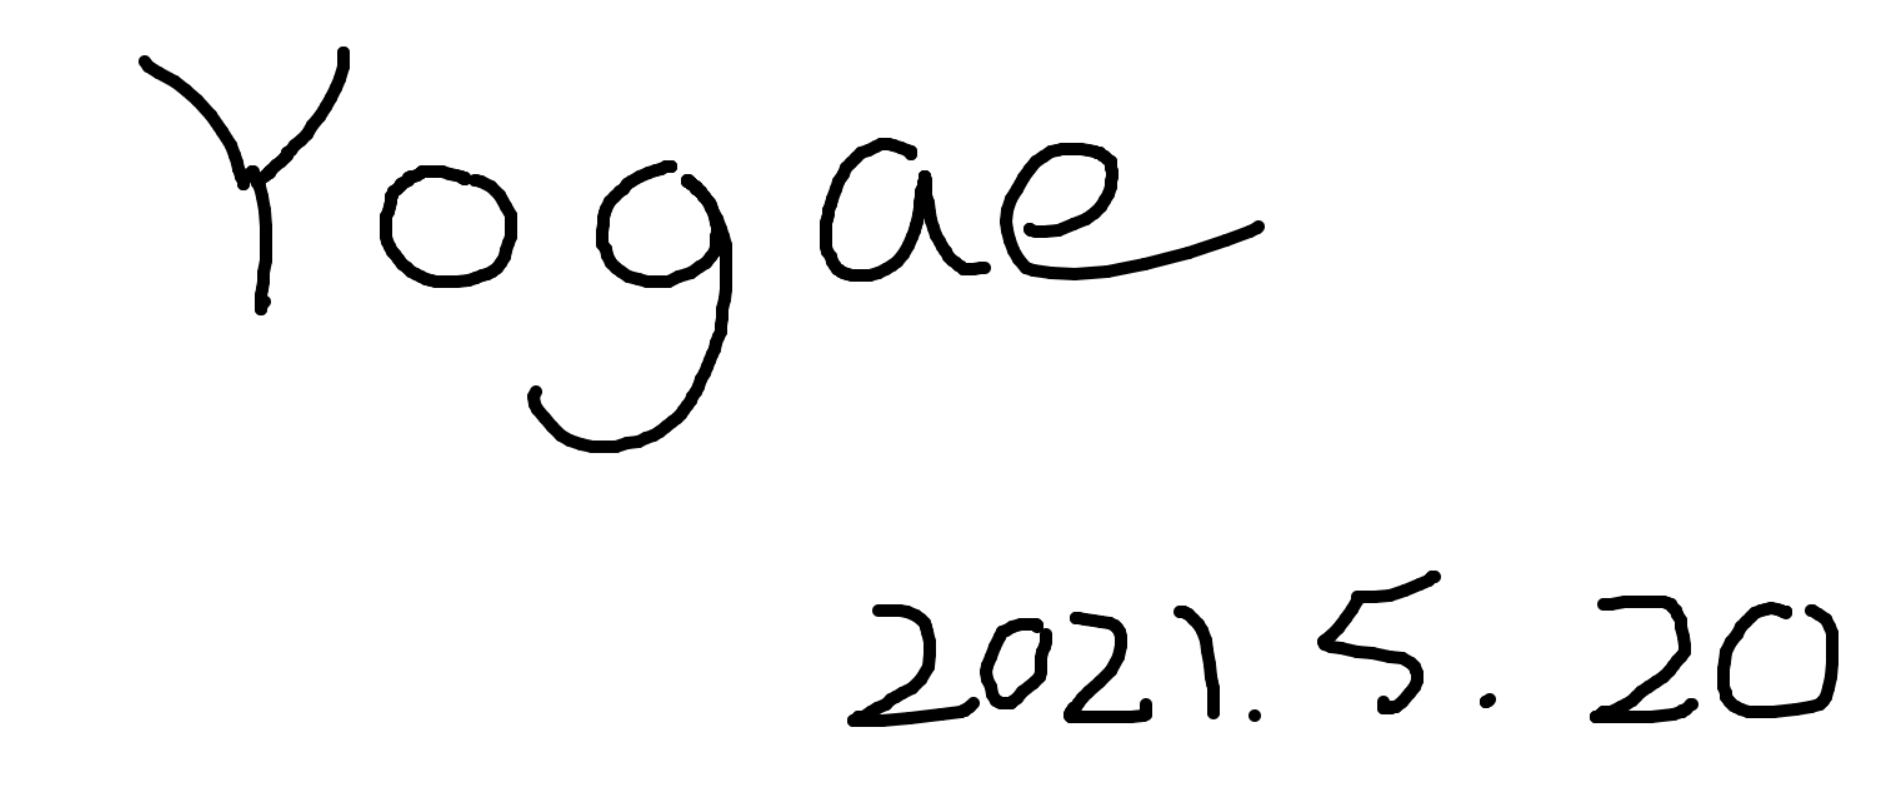 Yogae
2021. 5. 20